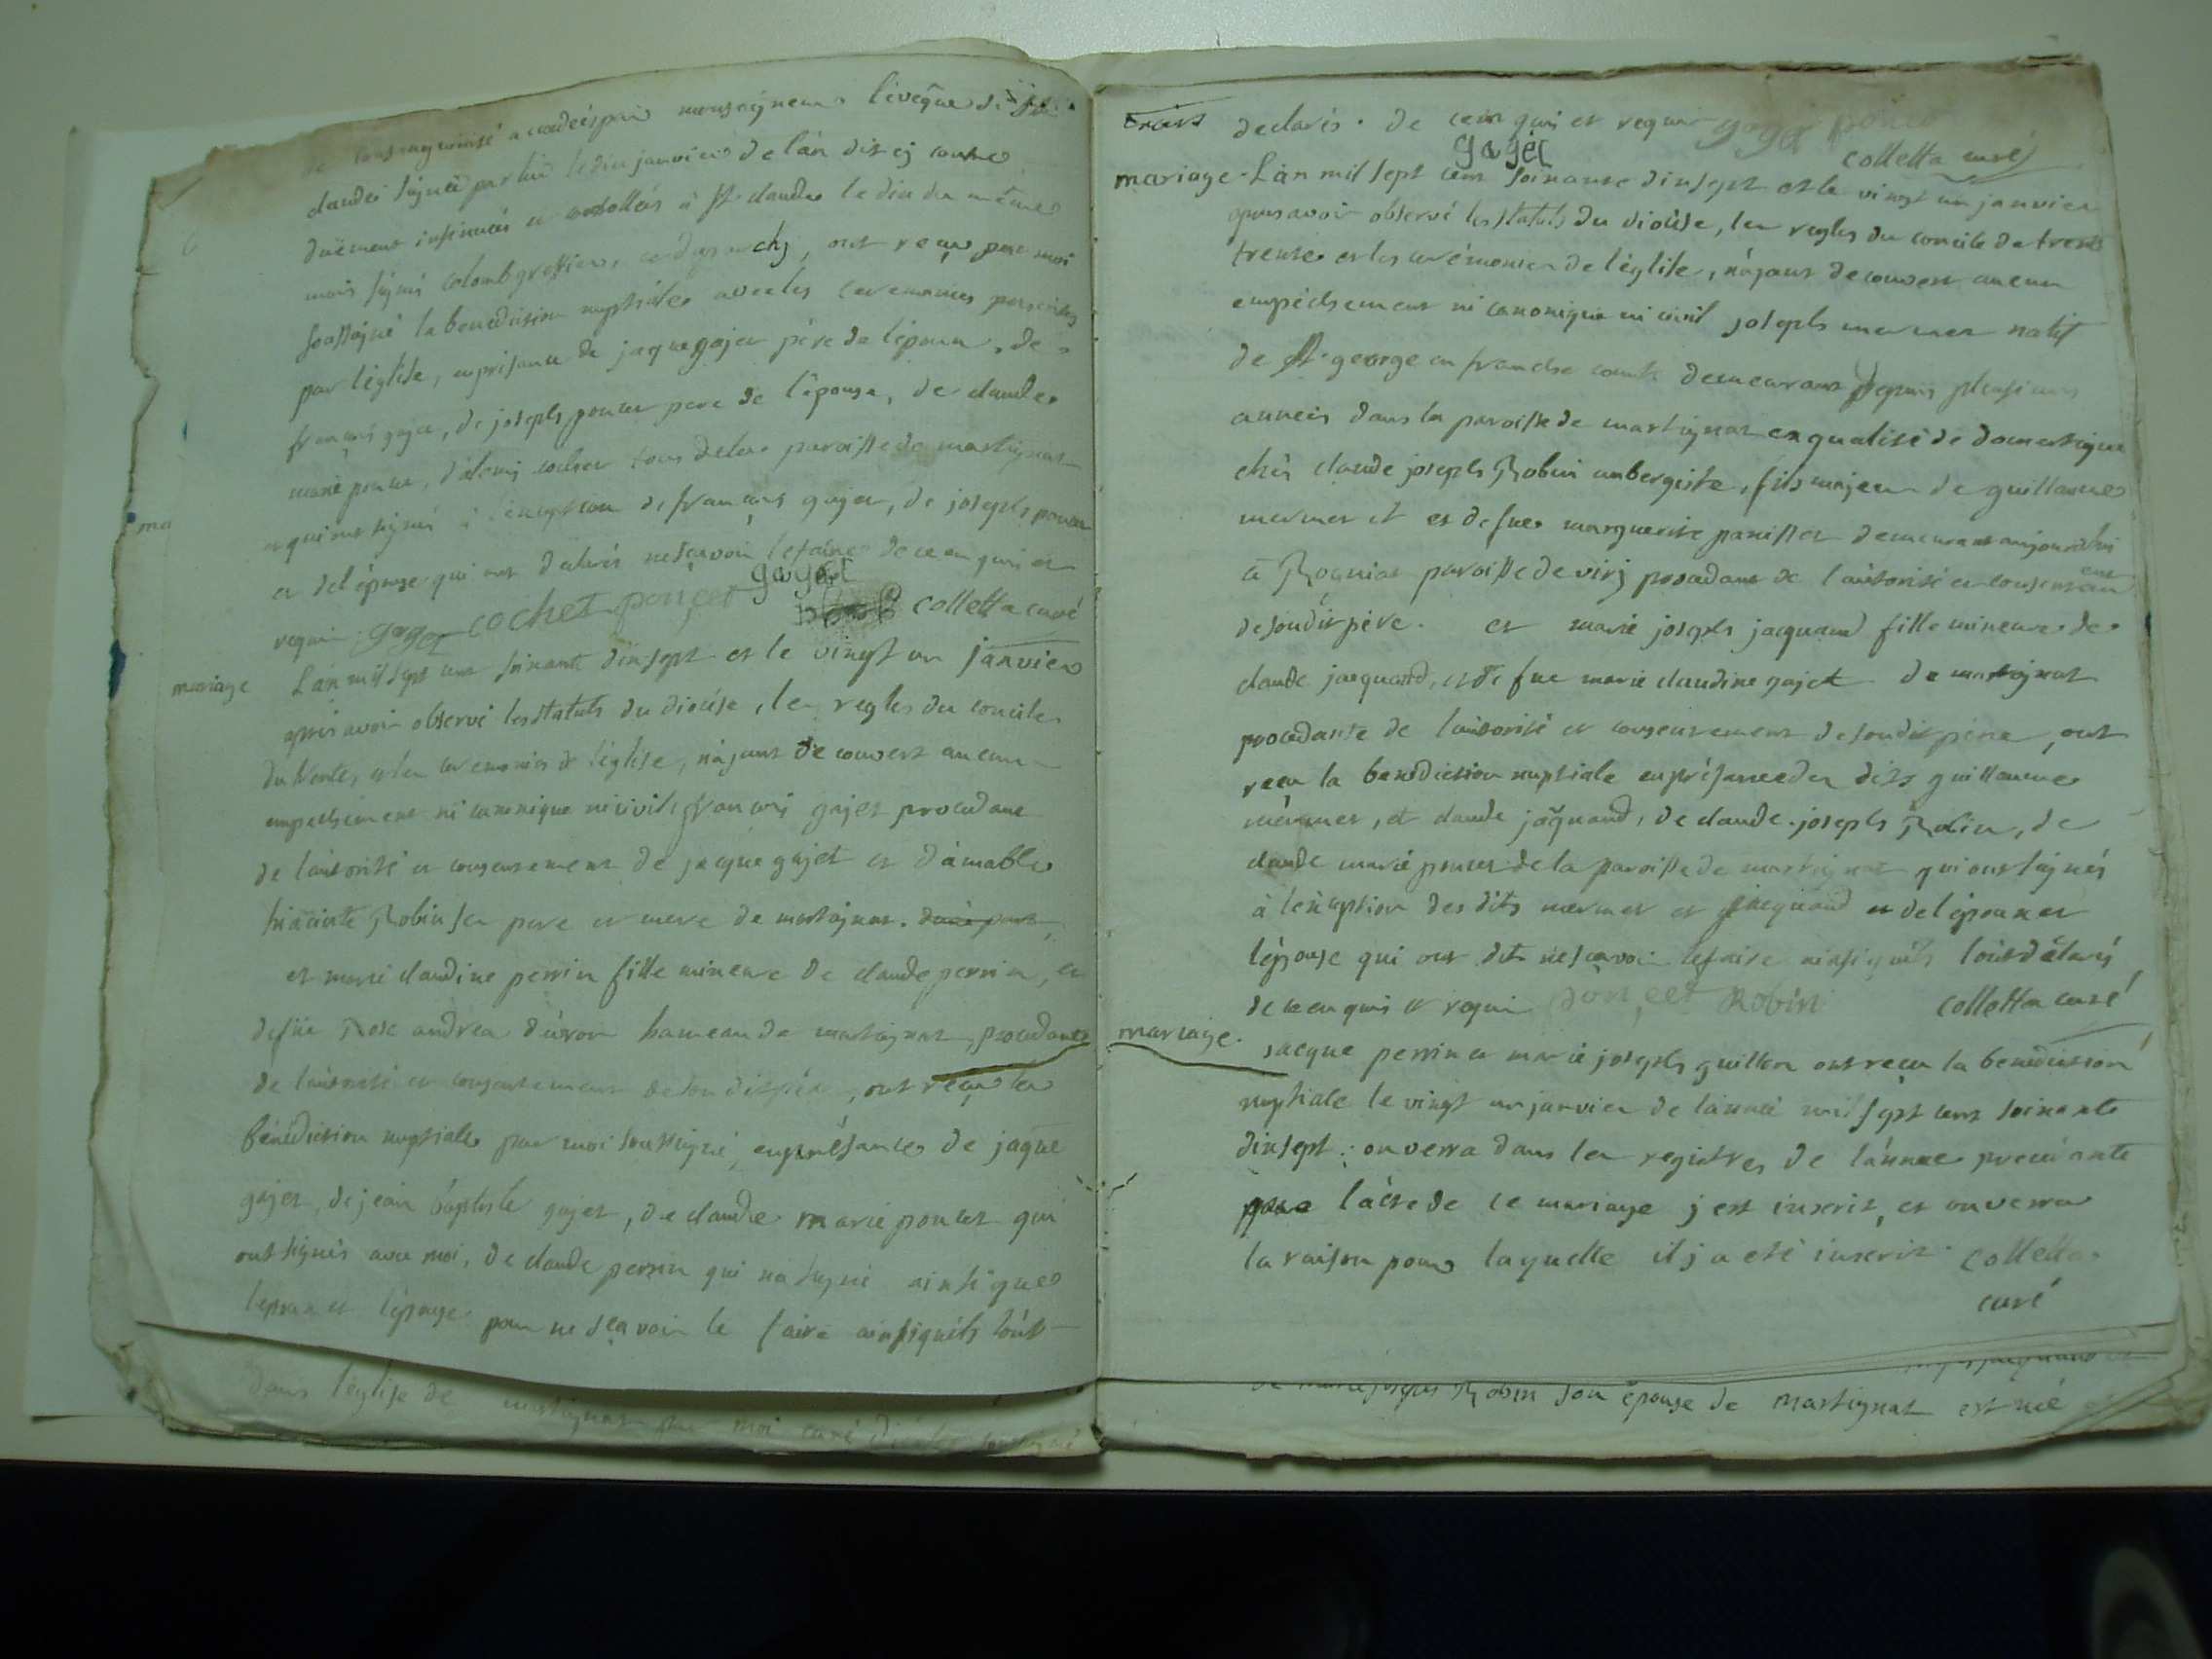 de consanguinité accordeés par monseigneur l'évêque de st
claude signeé par lui le dix janvier de l'an dit cj contre
duëment insinueés et controlleés à st. claude le dix du même
mois signé colomb greffier, ont reçu par moi
soussigné la benediction nuptiale avec les ceremonies prescrites
par l'église, en présance de jaque gajet père de l'époux, de
françois gajet, de joseph poncet pere de l'épouse, de claude
marie poncet, d'alexis cochet tous de la paroisse de martignat
et qui ont signés à l'exception de françois gajet, de joseph poncet
et de l'épouse qui ont declarés ne sçavoir le faire de ce en quoi et
requi gaget cochet poncet gaget colletta curé
mariage L'an mil sept cent soixante dixsept et le vingt un janvier
après avoir observé les statuts du diocése, les regles du concile
du trente, et les ceremonies de l'église, n'ajant decouvert aucun
empechement ni canonique ni civil, françois gajet procedant
de l'autorité et consentement de jacque gajet et d'aimable
hiacinte Robin ses pere et mere de martignat.
et marie claudine perrin fille mineure de claude perrin, et
de füe Rose andrea d'évron hameau de martignat, procedante
de l'autorité et consentement de son dit père, ont reçu la
bénédiction nuptiale par moi soussigné, en présance de jaque
gajet, de jean baptiste gajet, de claude marie poncet qui
ont signés avec moi, de claude perrin qui n'a signé ainsi que
l'époux et l'épouse pour ne sçavoir le faire ainsi qu'ils l'ont
dans l'église de martignat par moi curé soussigné
declarés. de ce en quoi et requi gaget poncet
gaget colletta curé
mariage. L'an mil sept cent soixante dixsept et le vingt un janvier
apres avoir observé les statuts du diocése, les regles du concile de trente
trente et les cerémonies de l'église, n'ajant decouvert aucun
empéchement ni canonique ni civil joseph mermet natif
de st. george en franche comté demeurant depuis plusieurs
anneés dans la paroisse de martignat en qualité de domestique
chés claude joseph Robin aubergiste, fils majeur de guillaume
mermet et de fue marguerite panisset demeurant aujourdhui
à Rognia paroisse de virj procedant de l'autorité et consentement
de soudit père. et marie joseph jacquand fille mineure de
claude jacquand, et de fue marie claudine gajet de martignat
procedante de l'autorité et consentement de soudit père, ont
reçu la benediction nuptiale en présance des dits guillaume
mérmet, et claude jaquand, de claude joseph Robin, de
claude marie poncet de la paroisse de martignat qui ont signés
à l'exception des dits mermet et jacquand et de l'époux et
l'épouse qui ont dit ne sçavoir le faire ainsi qu'ils l'ont déclaré
de ce en quoi et requi poncet Robin colletta curé
mariage. jacque perrin et marie joseph guillon ont reçu la benediction
nuptiale le vingt un janvier de l'anneé mil sept cent soixante
dixsept; on verra dans les registres de l'anneé
que l'acte de ce mariage j est inscrit, et on verra
la raison pour laquelle il j a eté inscrit. colletta
curé
de marie joseph Robin son épouse de martignat est né